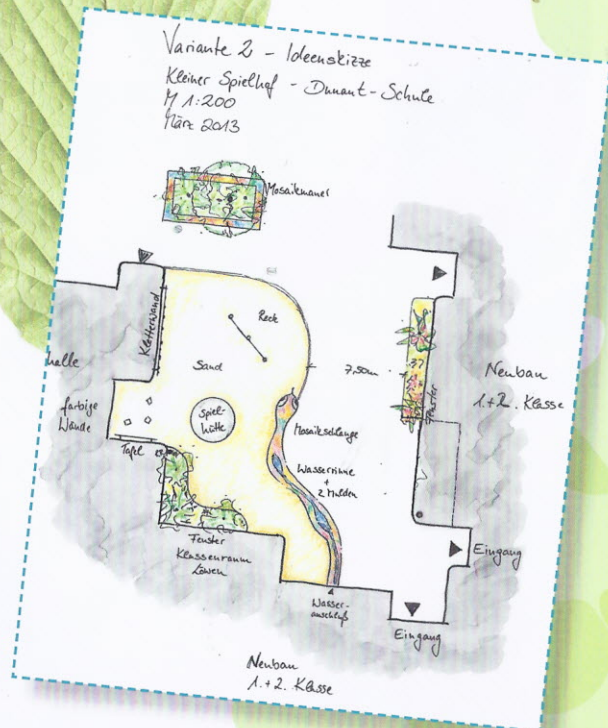 Variante 2 - Ideenskizze
Kleiner Spielhof - Dunant-Schule
M 1:200
März 2013
Mosaikmauer
Kletterwand
Reck
halle
Sand
7,50m
Neubau
1.+2. Klasse
Fenster
farbige
Wände
Spiel-
hütte
Tafel
Mosaikschlange
Wasserrinne
+
2 Mulden
Fenster
Klassenraum
Löwen
Eingang
Wasser-
anschluß
Eingang
Neubau
1.+2. Klasse